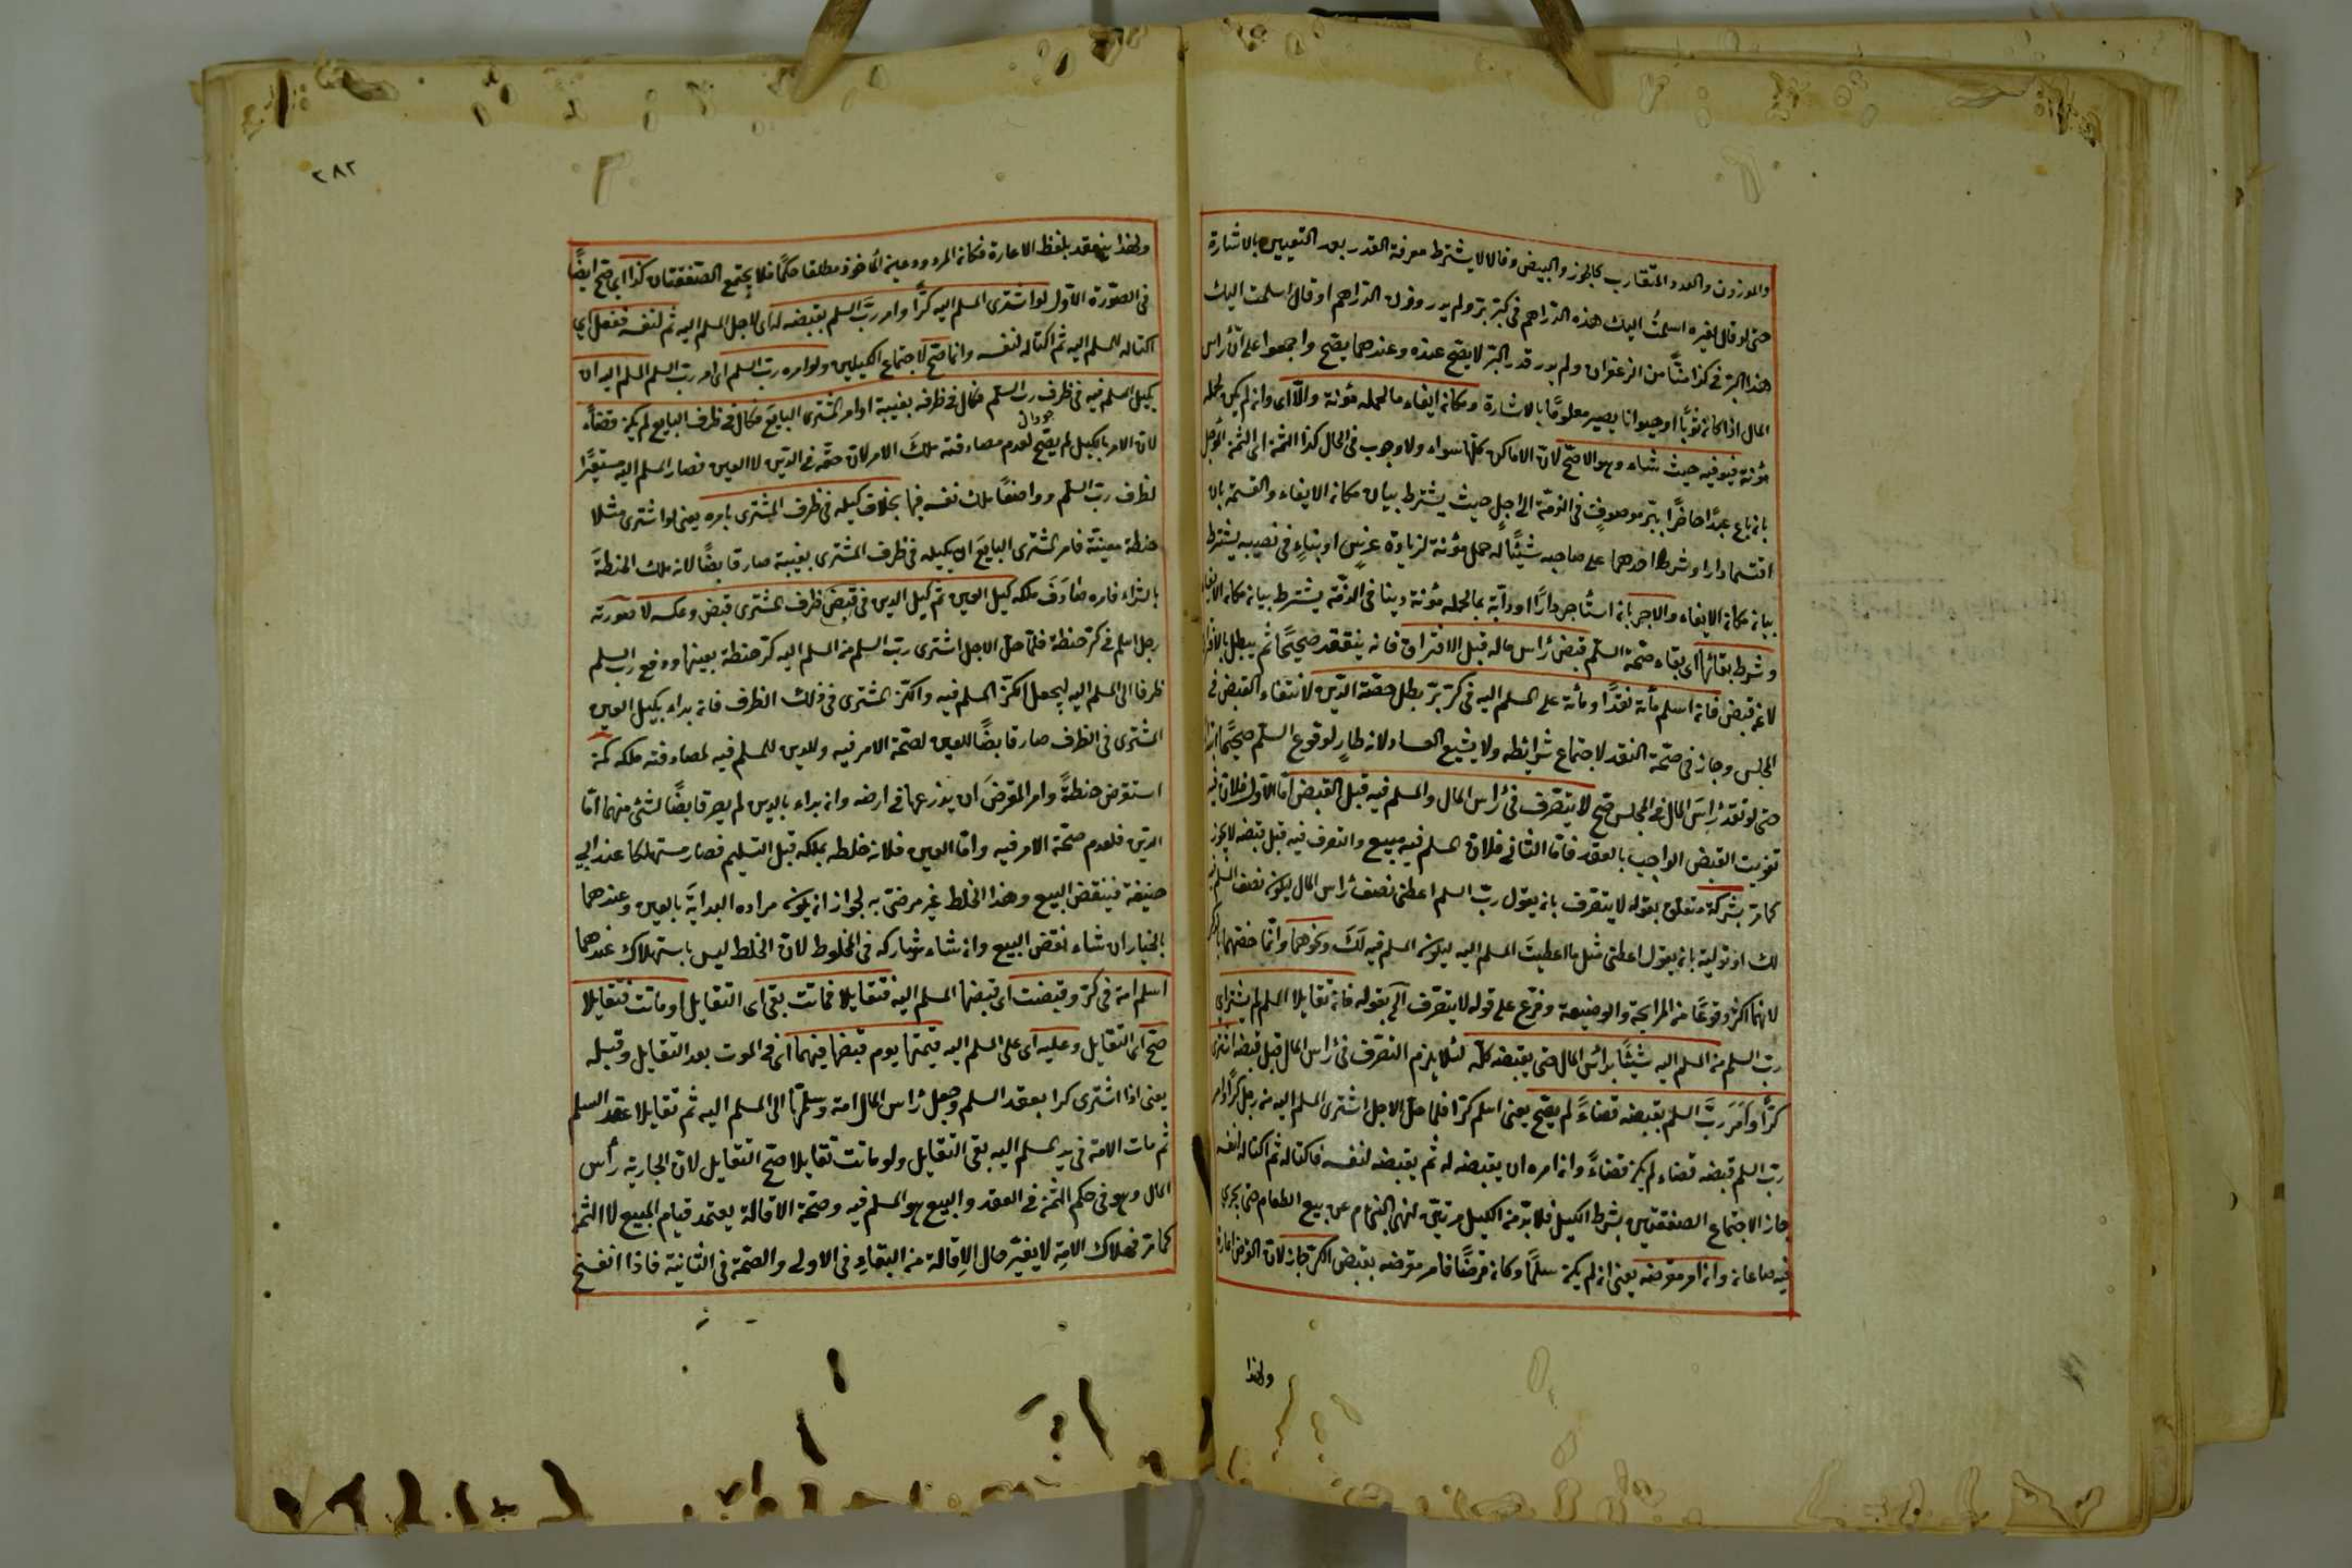 والموزون والعدد المتقارب كالجوز والبيض وقالا لا يشترط معرفة القدر بعد التعيين بالاشارة
حتى لو قال لغيره اسلمت اليك هذه الدراهم في كر بر ولم يدر وزن الدراهم او قال اسلمت اليك
هذا البر في كذا منًّا من الزعفران ولم يدر قدر البر لا يصح عنده وعندهما يصح واجمعوا على ان رأس
المال اذا كان ثوبًا او حيوانا يصير معلومًا بالاشارة ومكان ايفاء ما لحمله مؤنة والّا اى وان لم يكن لحمله
مؤنة فيوفيه حيث شاء وهو الاصح لان الاماكن كلها سواء ولا وجوب في الحال كذا الثمن اى الثمن المؤجل
بان باع عبدًا حاضرًا ببر موصوف في الذمة الى اجل حيث يشترط بيان مكان الايفاء والقسمة بان
اقتسما دارا وشرط احدهما على صاحبه شيئًا له حمل مؤنة لزيادة غرس او بناء في نصيبه يشترط
بيان مكان الايفاء والاجر بان استأجر دارًا او دابة بما لحمله مؤنة دينا في الذمة يشترط بيان مكان الايفاء
وشرط بقائها اى بقاء صحة السلم قبض رأس ماله قبل الافتراق فانه ينعقد صحيحًا ثم يبطل بالافتراق
لا عن قبض فان اسلم مأة نقدًا ومأة على المسلم اليه في كر بر بطل حصة الدين لانتفاء القبض في
المجلس وجاز في حصة النقد لاجتماع شرائطه ولا يشيع الفساد لانه طارٍ لوقوع السلم صحيحًا
حتى لو نقد رأس المال في المجلس صح لا يتصرف في رأس المال والمسلم فيه قبل القبض اما الاول فلان فيه
تفويت القبض الواجب بالعقد فاما الثاني فلان المسلم فيه مبيع والتصرف فيه قبل قبضه لا يجوز
كما مر بشركة متعلق بقوله لا يتصرف بان يقول رب السلم اعطني نصف رأس المال ليكون نصف المسلم فيه
لك او تولية بان يقول اعطني مثل ما اعطيت المسلم اليه ليكون المسلم فيه لك ونحوهما وانما خصهما بالذكر
لانهما اكثر وقوعًا من المرابحة والوضيعة وفرّع على قوله لا يتصرف الخ بقوله فان تقايلا السلم لم يشتراى
رب السلم من المسلم اليه شيئًا برأس المال حتى يقبضه كله لئلا يلزم التصرف في رأس المال قبل قبضه اشترى
كرًّا وأمر ربّ السلم بقبضه قضاءً لم يصح يعنى اسلم كرا فلما حل الاجل اشترى المسلم اليه من رجل كرًّا وامر
رب السلم قبضه قضاء لم يكن قضاءً وان امره ان يقبضه له ثم يقبضه لنفسه فاكتاله ثم اكتاله لنفسه
جاز لاجتماع الصفقتين بشرط الكيل فلا بد من الكيل مرتين لنهى النبي ام عن بيع الطعام حتى يجرى
فيه صاعان وان امر مقرضه يعنى ان لم يكن سلمًا وكان قرضًا فامر مقرضه بقبض الكر جاز لان القرض اعارة
ولهذا
٢٨٢
ولهذا ينعقد بلفظ الاعارة فكان المردود عين المأخوذ مطلقا حكمًا فلا يجتمع الصفقتان كذا اى صح ايضًا
في الصورة الاولى لو اشترى المسلم اليه كرًّا وامر ربّ السلم بقبضه له اى لاجل المسلم اليه ثم لنفسه ففعل اى
اكتاله للمسلم اليه ثم اكتاله لنفسه وانما صح لاجتماع الكيلين ولو امره رب السلم اى امر رب السلم المسلم اليه ان
يكيل المسلم فيه في ظرف رب السلم فكال في ظرفه بغيبته او امر المشترى البايع فكال في ظرف البايع لم يكن قضاءً
لان الامر بالكيل لم يصح لعدم مصادفته ملك الامر لان حقه في الدين لا العين فصار المسلم اليه مستعيرًا
لظرف رب السلم وواضعًا ملك نفسه فيها بخلاف كيله في ظرف المشترى بامره يعنى لو اشترى مثلا
حنطة معينة فامر المشترى البايع ان يكيله في ظرف المشترى بغيبته صار قابضًا لانه ملك الحنطة
بالشراء فامره صادف ملكه كيل العين ثم كيل الدين في قبض ظرف المشترى قبض وعكسه لا صورته
رجل اسلم في كر حنطة فلما حل الاجل اشترى رب السلم من المسلم اليه كر حنطة بعينها ودفع رب السلم
ظرفا الى المسلم اليه ليجعل الكر المسلم فيه والكر المشترى في ذلك الظرف فان بداء بكيل العين
المشترى في الظرف صار قابضًا للعين لصحة الامر فيه وللدين للمسلم فيه لمصادفته ملكه كمن
استقرض حنطةً وامر المقرض ان يزرعها في ارضه وان بداء بالدين لم يصر قابضًا لشئ منهما اما
الدين فلعدم صحة الامر فيه واما العين فلانه خلطه بملكه قبل التسليم فصار مستهلكا عند ابي
حنيفة فينقض البيع وهذا الخلط غير مرضى به لجواز ان يكون مراده البداية بالعين وعندهما
بالخيار ان شاء نقض البيع وان شاء شاركه في المخلوط لان الخلط ليس باستهلاك عندهما
اسلم امة في كر وقبضت اى قبضها المسلم اليه فتقايلا فماتت بقى اى التقايل او ماتت فتقايلا
صح اى التقايل وعليه اى على المسلم اليه قيمتها يوم قبضها فيهما اى في الموت بعد التقايل وقبله
يعنى اذا اشترى كرا بعقد السلم وجعل رأس المال امة وسلمها الى المسلم اليه ثم تقايلا عقد السلم
ثم مات الامة في يد المسلم اليه بقى التقايل ولو ماتت تقايلا صح التقايل لان الجارية رأس
المال وهو في حكم الثمن في العقد والمبيع هو المسلم فيه وصحة الاقالة يعتمد قيام المبيع لا الثمن
كما مر فهلاك الامة لا يغير حال الاقالة من البقاء في الاولى والصحة في الثانية فاذا انفسخ